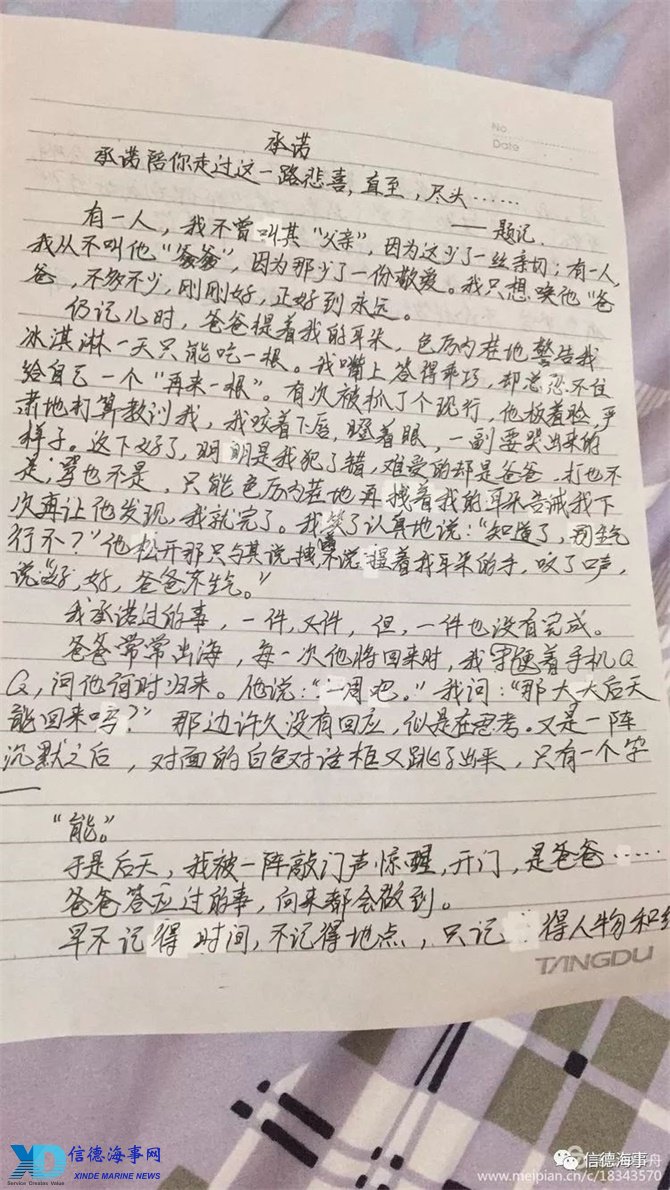 No
Date
承诺
承诺陪你走过这一路悲喜,直至,尽头……
——题记.
有一人,我不曾叫其“父亲”,因为这少了一丝亲切;有一人,
我从不叫他“爹爹”,因为那少了一份敬爱。我只想唤他“爸
爸,不多不少,刚刚好,正好到永远。
仍记儿时,爸爸提着我的耳朵,色厉内茬地警告我
冰淇淋一天只能吃一根。我嘴上答得乖巧,却总忍不住
给自己一个“再来一根”。有次被抓了个现行,他板着脸,严
肃地打算教训我,我咬着下唇,瞪着眼,一副要哭出来的
样子。这下好了,明明是我犯了错,难受的却是爸爸,打也不
是,骂也不是,只能色厉内茬地再拽着我的耳朵告诫我下
次再让他发现,我就完了。我笑了认真地说:“知道了,别生气
行不?”他松开那只与其说拽,不说捏着我耳朵的手,叹了口声,
说“好,好,爸爸不生气。”
我承诺过的事,一件,又件,但,一件也没有完成。
爸爸常常出海,每一次他将回来时,我便着手机Q
Q,问他何时归来。他说:“一周吧。”我问:“那大大后天
能回来吗?”那边许久没有回应,似是在思考。又是一阵
沉默之后,对面的白色对话框又跳了出来,只有一个字
—
“能。”
于是后天,我被一阵敲门声惊醒,开门,是爸爸……
爸爸答应过的事,向来都会做到。
早不记得时间,不记得地点,只记得人物和
TANGDU
XD
信德海事网
Service Creates Value
XINDE MARINE NEWS
信德海事
舟
www.meipian.cn/c/18343570